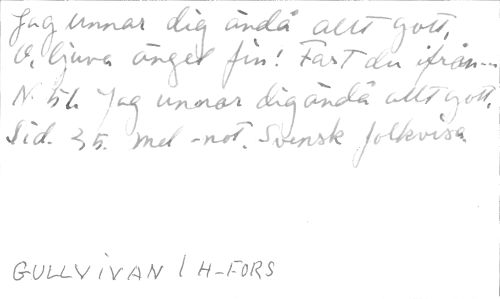 Jag unnar dig ändå allt gott,
O, ljuva ängel fin! Fast du ifrån-
N. 56. Jag unnar dig ändå allt gott,
Sid. 35. mel-not. Svensk folkvisa
GULLVIVAN / H-FORS